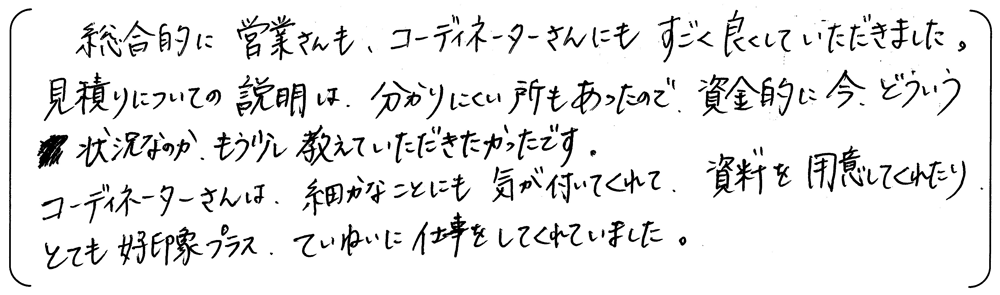 総合的に営業さんも、コーディネーターさんにもすごく良くしていただきました。
見積りについての説明は、分かりにくい所もあったので、資金的に今、どういう
状況なのか、もう少し教えていただきたかったです。
コーディネーターさんは、細かなことにも気が付いてくれて、資料を用意してくれたり、
とても好印象プラス、ていねいに仕事をしてくれていました。